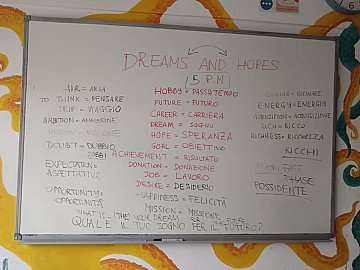 DREAMS AND HOPES
5 P.M
AIR = ARIA
TO THINK = PENSARE
TRIP = VIAGGIO
AMBITION = AMBIZIONE
VISION = VISIONE
DOUBT = DUBBIO
DUBBI
EXPECTATION =
ASPETTATIVE
OPPORTUNITY =
OPPORTUNITÀ
HOBBY = PASSATEMPO
FUTURE = FUTURO
CAREER = CARRIERA
DREAM = SOGNO
HOPE = SPERANZA
GOAL = OBIETTIVO
ACHIEVEMENT = RISULTATO
DONATION = DONAZIONE
JOB = LAVORO
DESIRE = DESIDERIO
HAPPINESS = FELICITÀ
MISSION = MISSIONE
CUCINARE
ENERGY = ENERGIA
ACQUISITION = ACQUISIZIONE
RICH = RICCO
RICHNESS = RICCHEZZA
RICCHI
FUORI FASE
PHASE
POSSIDENTE
WHAT IS YOUR DREAM FOR THE FUTURE
QUALE È IL TUO SOGNO PER IL FUTURO?